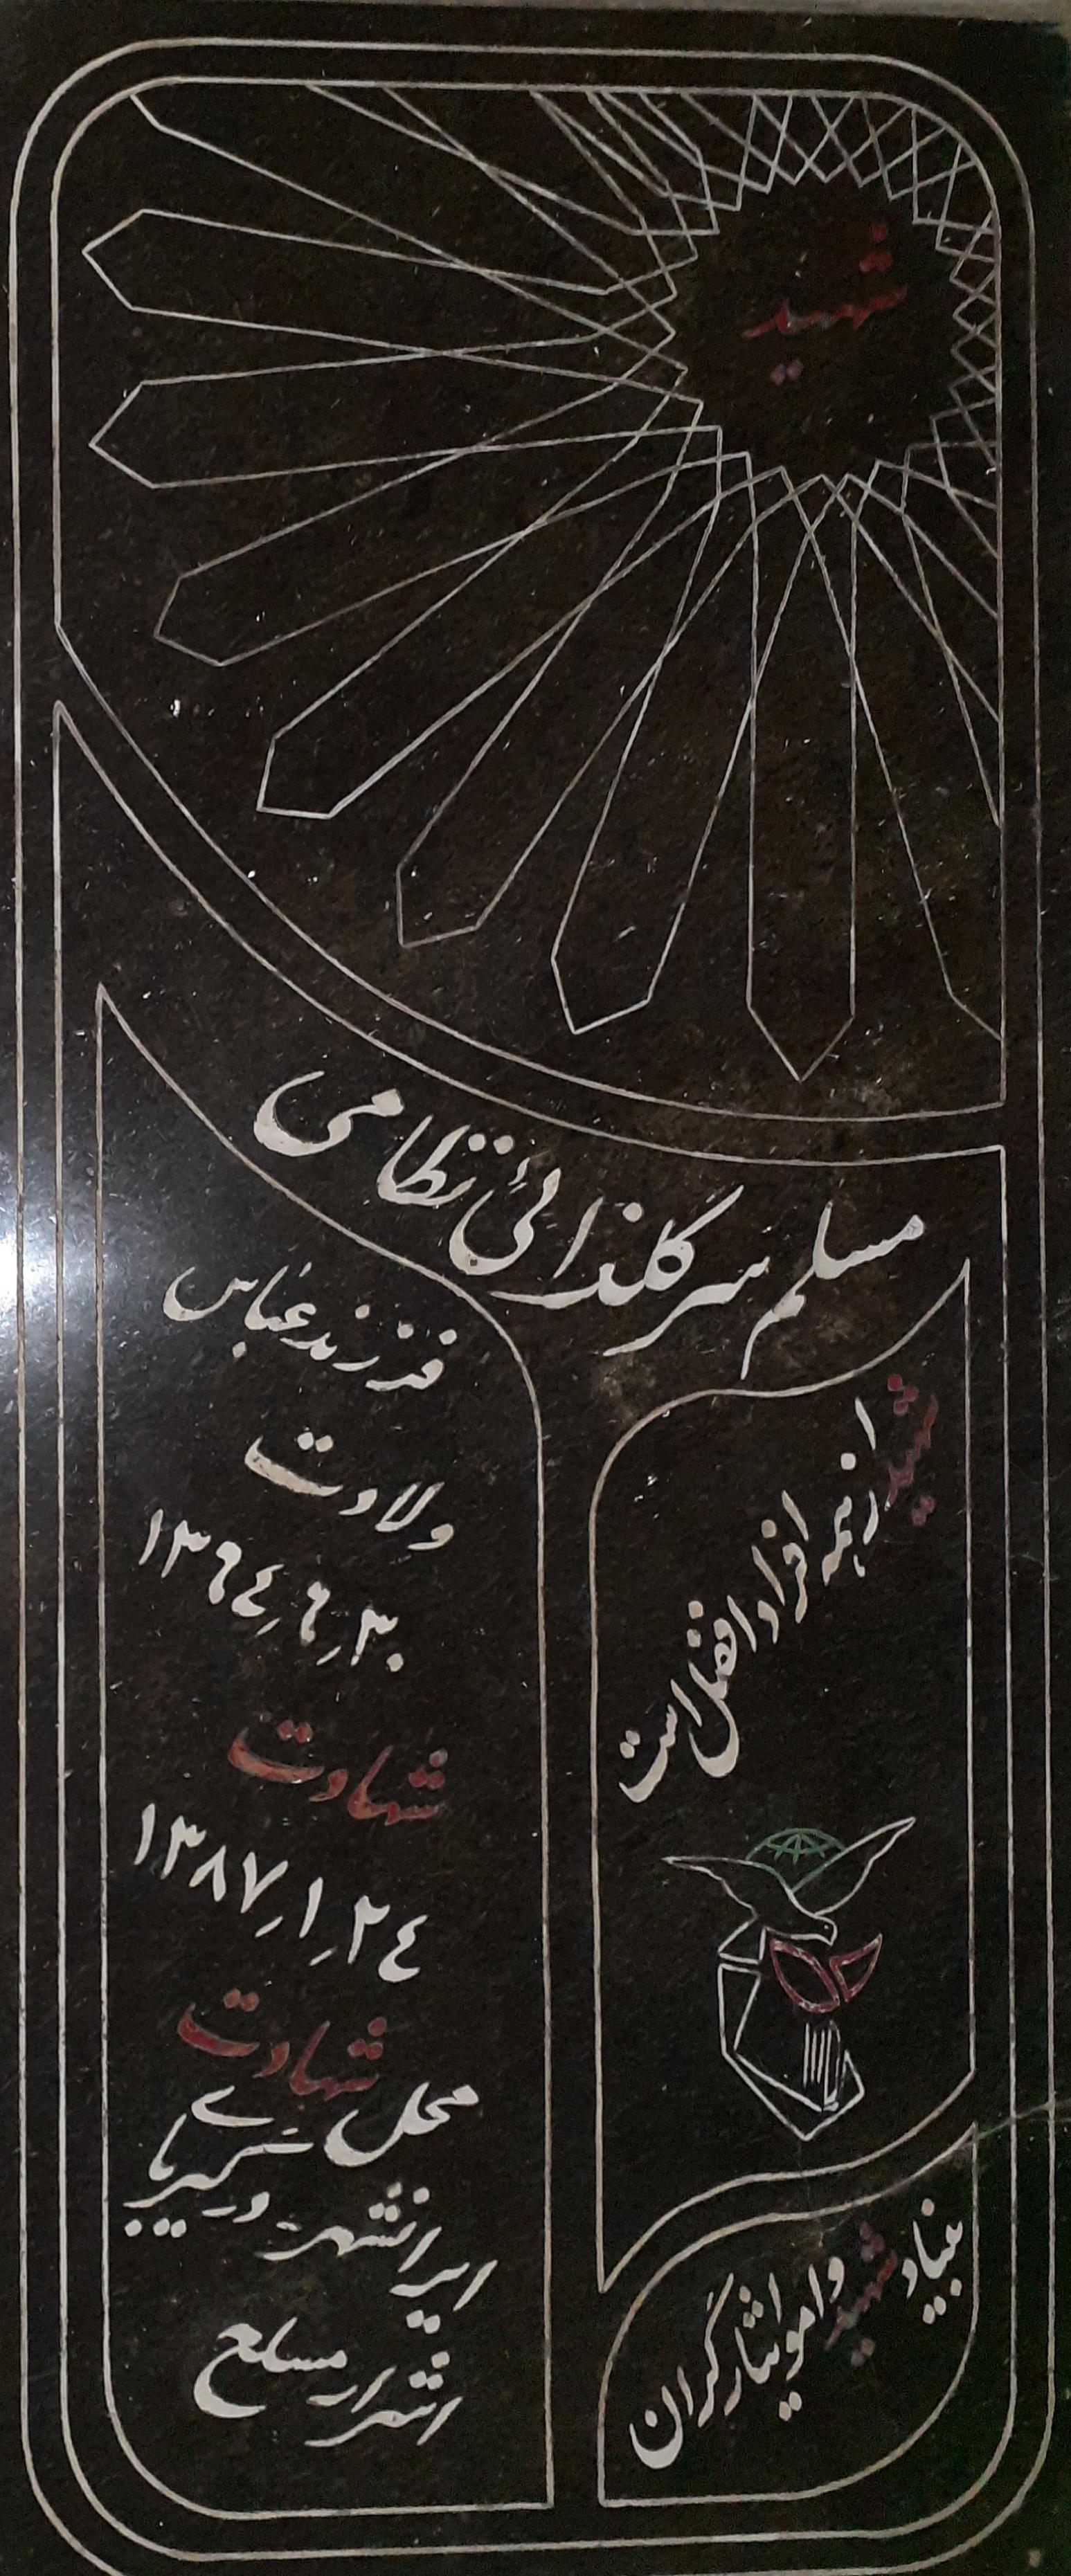 شهید
مسلم سرگلزائی نظامی
فرزند عباس
ولادت
۱۳۶۴٫۶٫۳۰
شهادت
۱۳۸۷٫۱٫۲۴
محل شهادت
ایرانشهر - درگیری با
اشرار مسلح
شهید از همه افراد افضل است
بنیاد شهید و امور ایثارگران